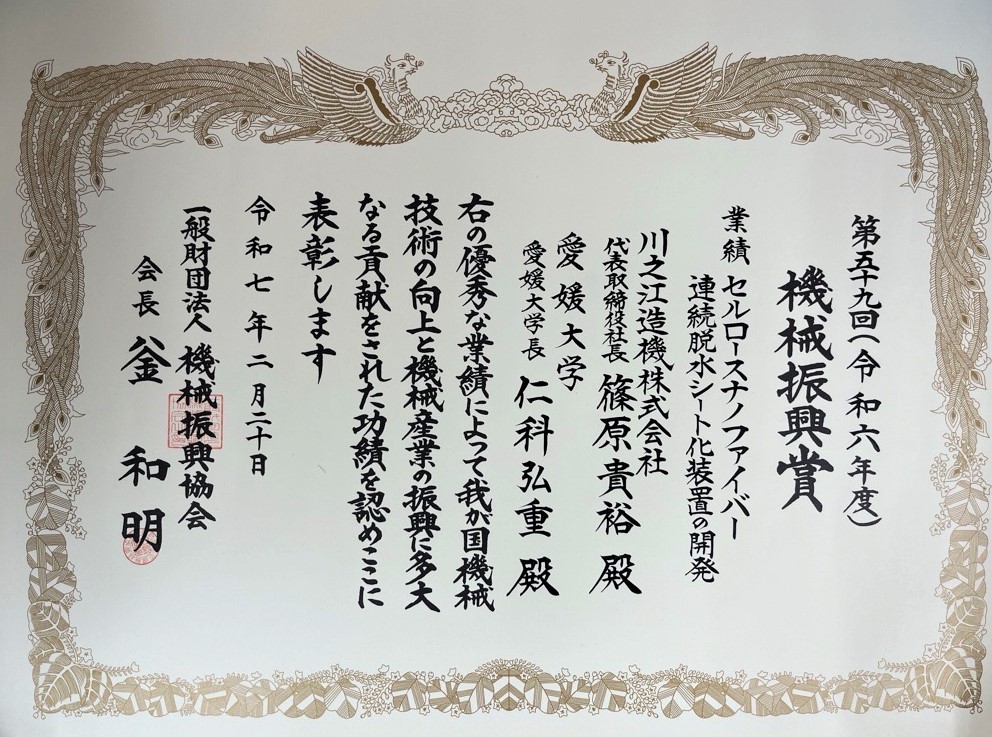 第五十九回(令和六年度)
機械振興賞
業績 セルロースナノファイバー
連続脱水シート化装置の開発
川之江造機株式会社
代表取締役社長 篠原貴裕 殿
愛媛大学
愛媛大学長 仁科弘重 殿
右の優秀な業績によって我が国機械
技術の向上と機械産業の振興に多大
なる貢献をされた功績を認めここに
表彰します
令和七年二月二十日
一般財団法人 機械振興協会
会長 釜和明